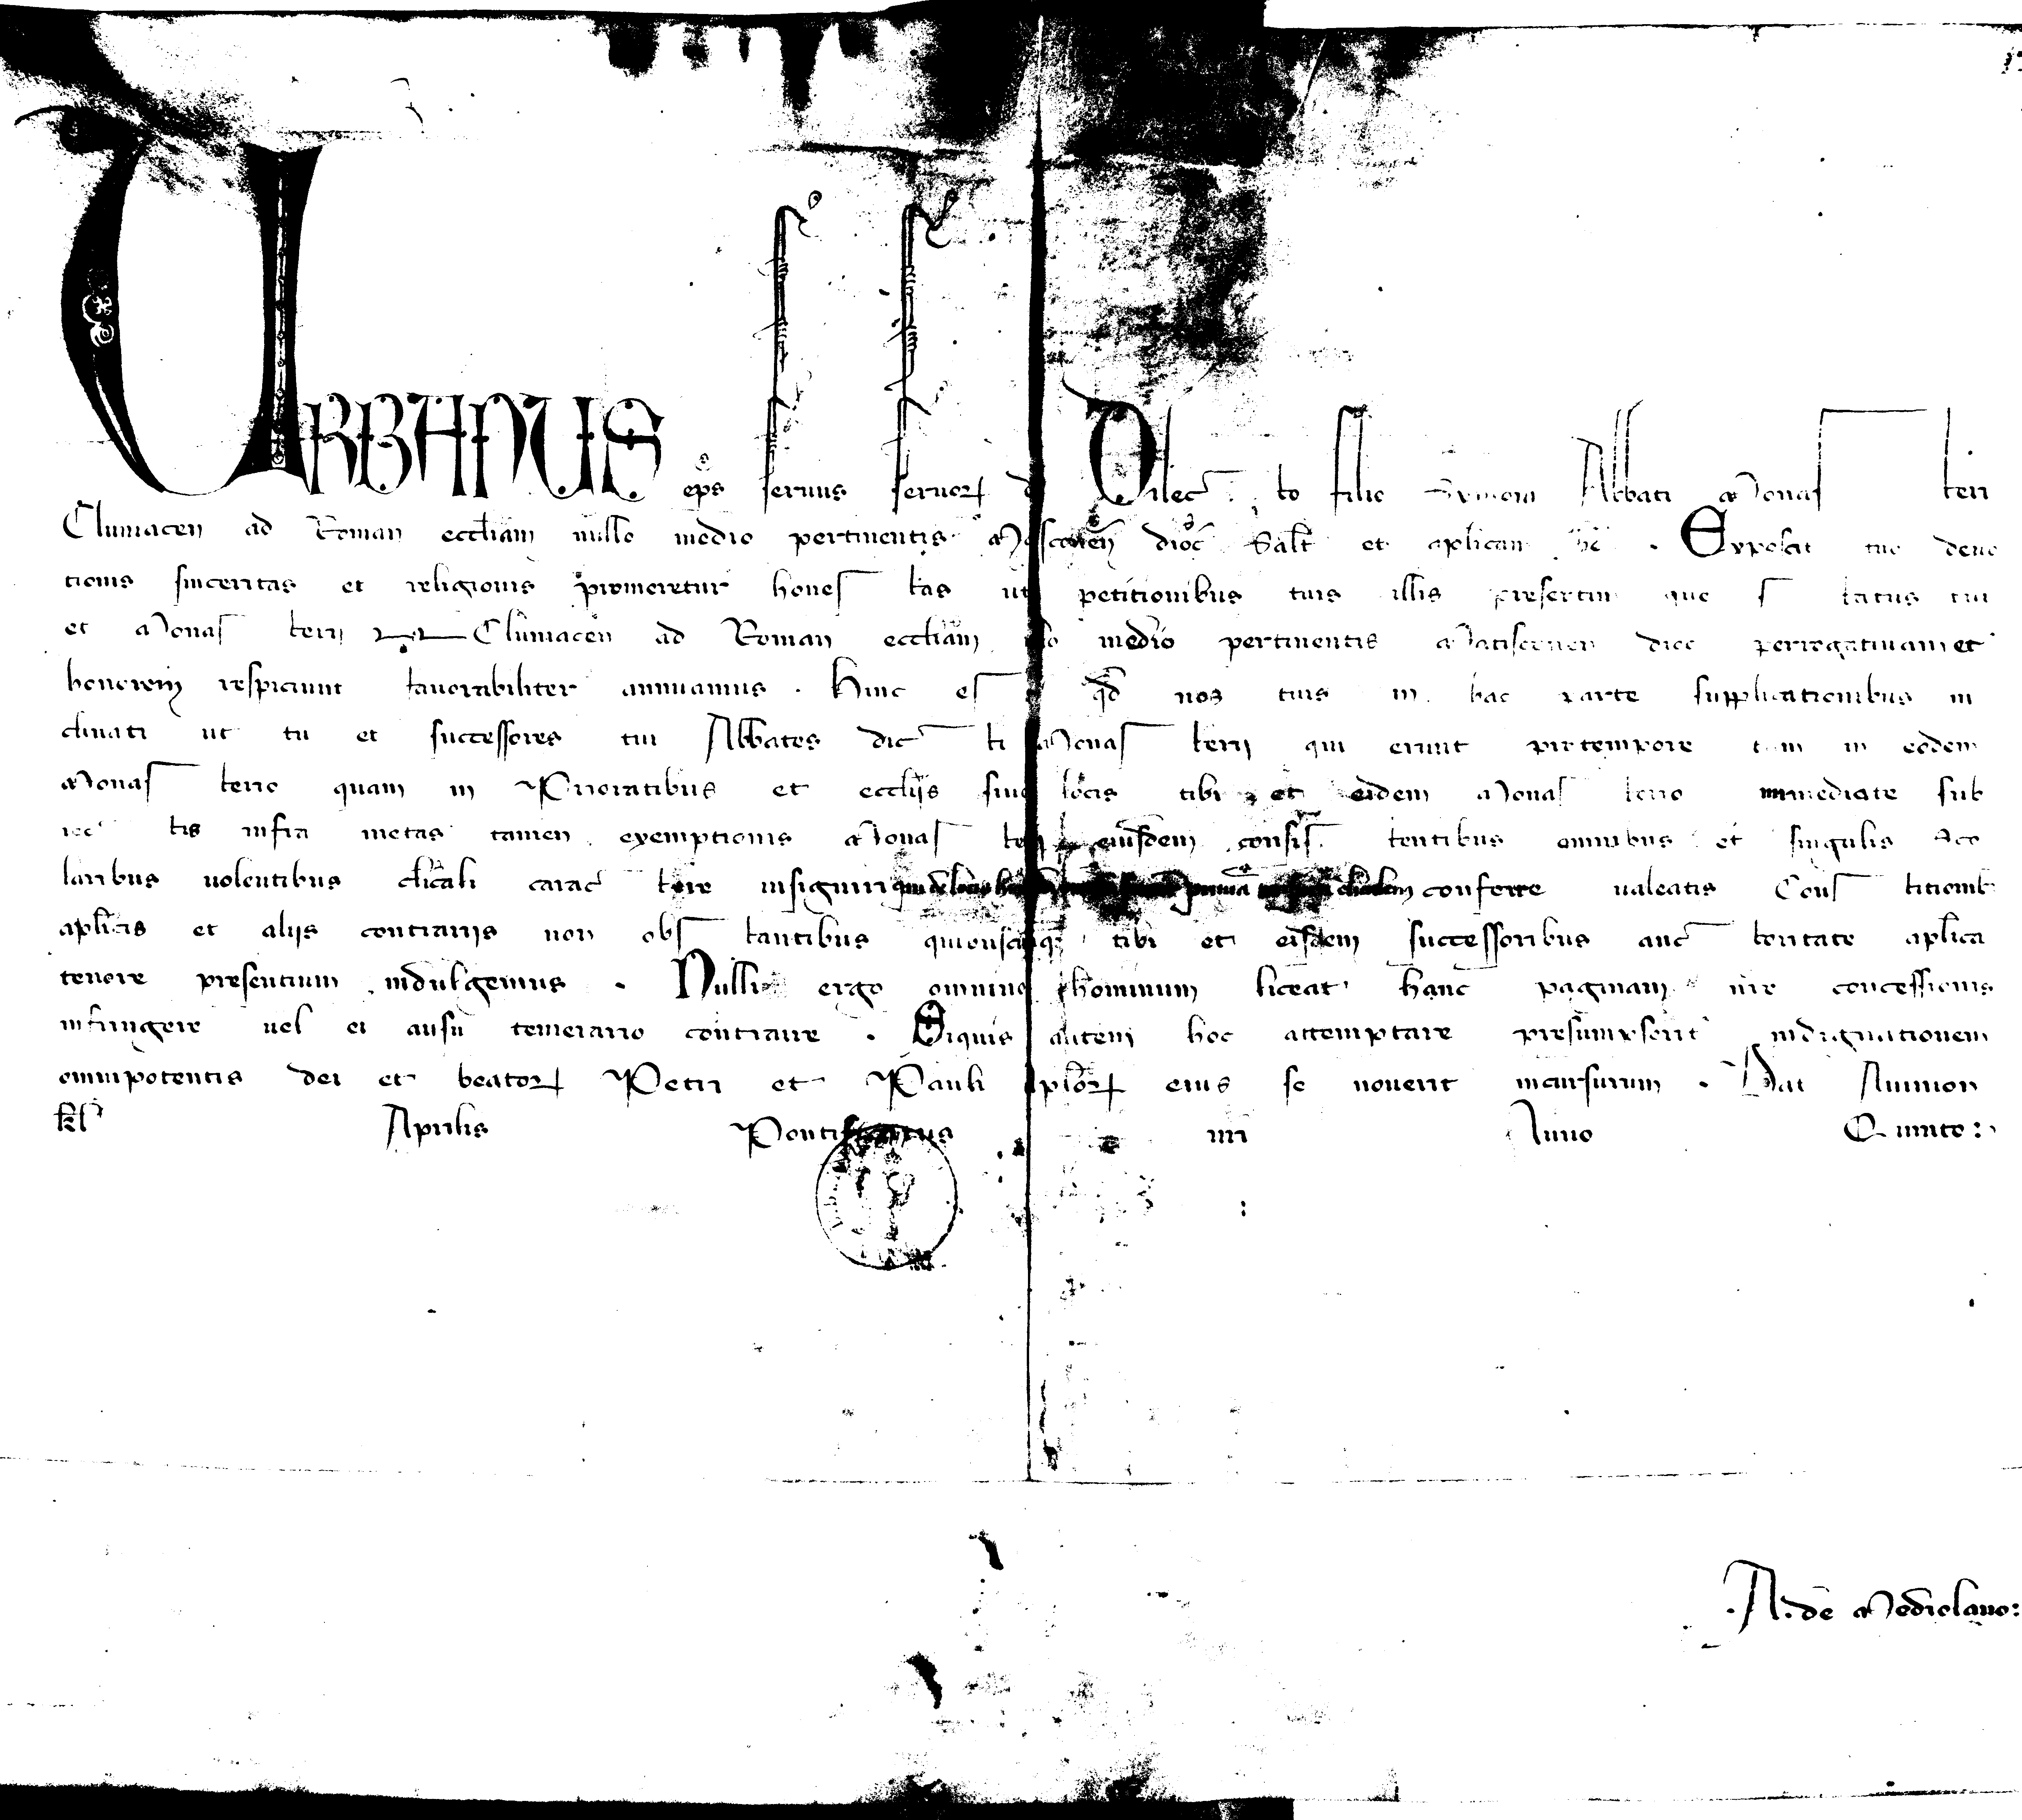 URBANUS eps seruus seruor d Dilec to filio Symoni Abbati Monas terii
Cluniacen ad Roman eccliam nullo medio pertinentis dioc Salt et aplicam . Exposcit tue deuo
tionis sinceritas et religionis promeretur hones tas ut petitionibus tuis illis presertim que s tatus tui
et Monas terii Cluniacen ad Roman eccliam medio pertinentis Matisconen dioc perrogatiuam et
honorem respiciunt fauorabiliter annuamus . Hinc es qd nos tuis in hac parte supplicationibus in
clinati ut tu et successores tui Abbates dic ti Monas terii qui erunt pro tempore tam in eodem
Monas terio quam in Prioratibus et ecclijs siue locis tibi et eidem Monas terio immediate sub
iec tis infra metas tamen exemptionis Monas terii eiusdem consis tentibus omnibus et singulis Sco
laribus uolentibus clicali carac tere insigniri qui de locis primam conferre ualeatis Cons titionib
aplicis et alijs contrarijs non obs tantibus quibuscunq tibi et eisdem successoribus auc toritate aplica
tenore presentium indulgemus . Nulli ergo omnino hominum liceat hanc paginam nre concessionis
infringere uel ei ausu temerario contraire . Siquis autem hoc attemptare presumpserit indignationem
omnipotentis dei et beator Petri et Pauli aplor eius se nouerit incursurum . Dat Auinion
kl Aprilis Pontificatus nri Anno Quinto :
. A . de Mediolano :